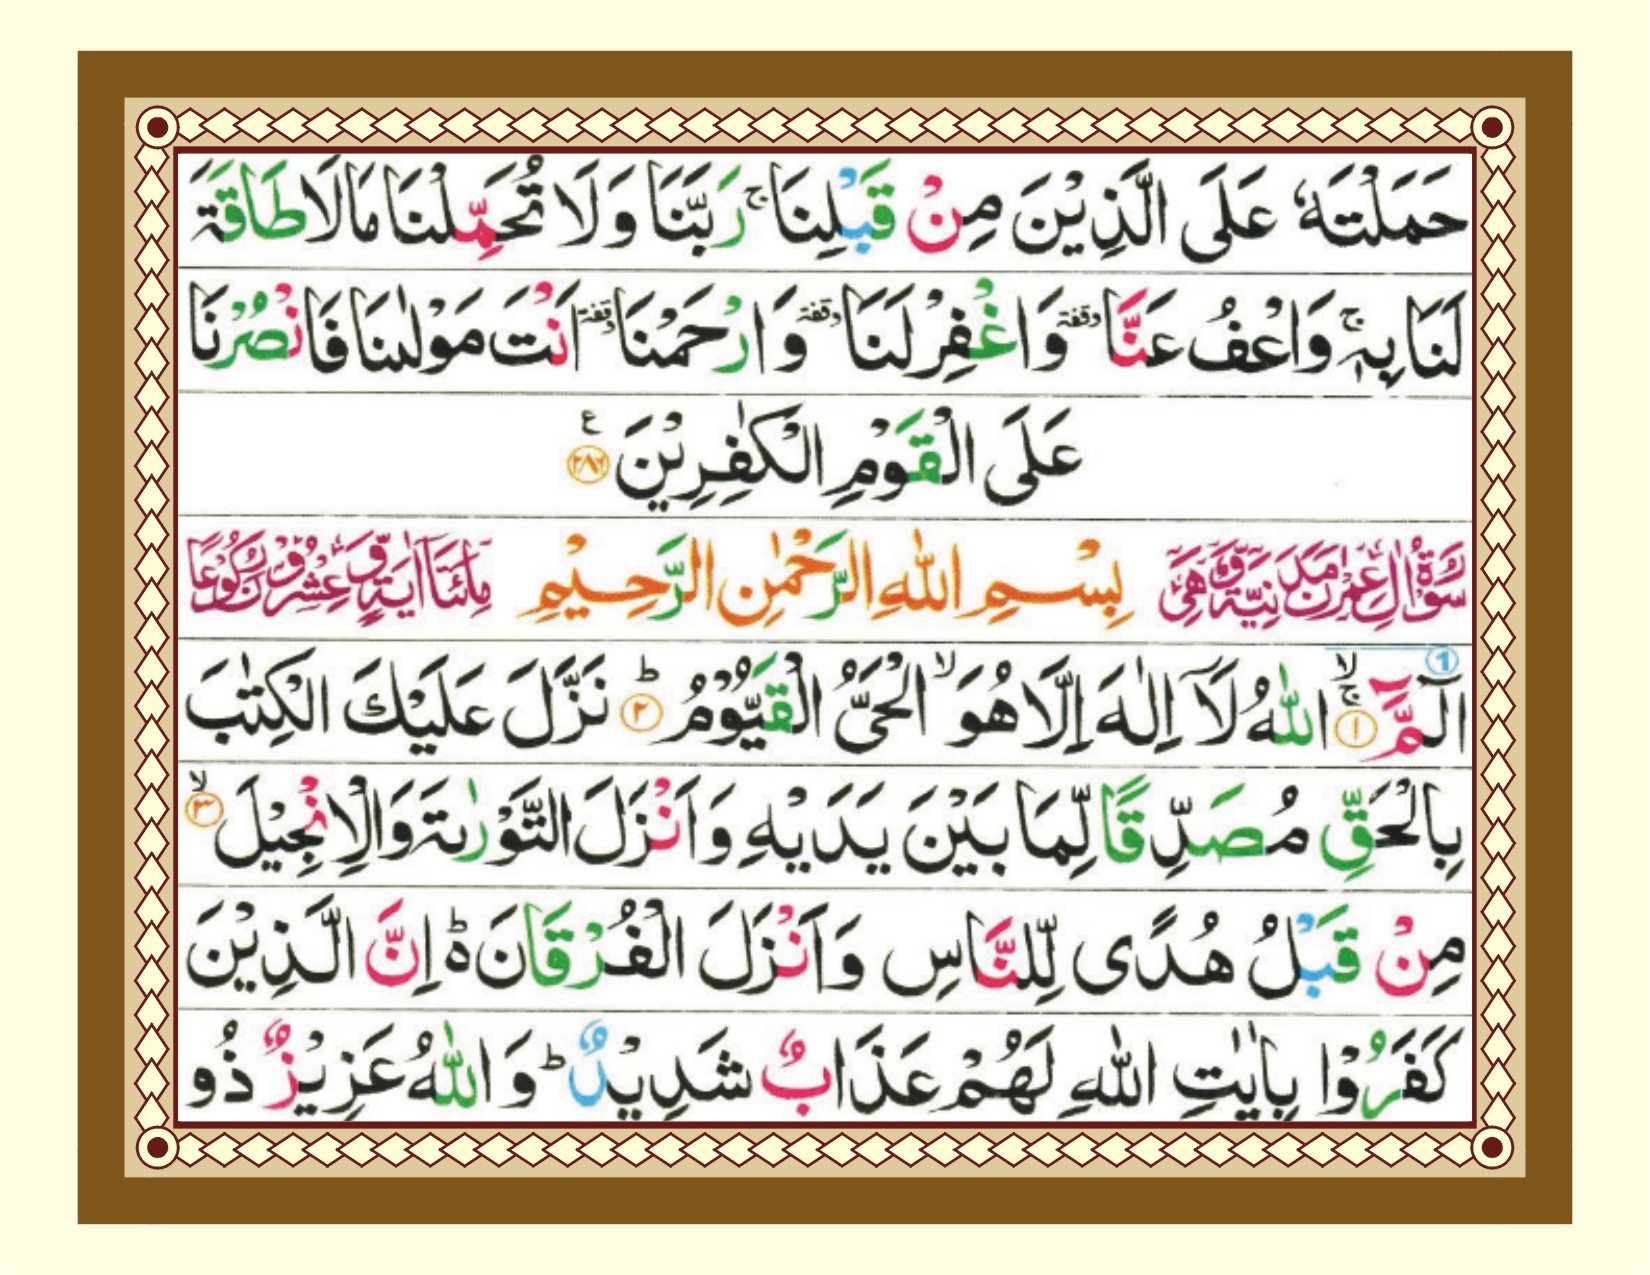 حَمَلْتَهٗ عَلَى الَّذِيْنَ مِنْ قَبْلِنَا ۚ رَبَّنَا وَلَا تُحَمِّلْنَا مَا لَا طَاقَةَ
لَنَا بِهٖ ۚ وَاعْفُ عَنَّا ۥوقفة وَاغْفِرْ لَنَا ۥوقفة وَارْحَمْنَا ۥوقفة اَنْتَ مَوْلٰىنَا فَانْصُرْنَا
عَلَى الْقَوْمِ الْكٰفِرِيْنَ ع ۲۸۶
سُوْرَةُ اٰلِ عِمْرٰنَ مَدَنِيَّةٌ وَّهِيَ بِسْمِ اللّٰهِ الرَّحْمٰنِ الرَّحِيْمِ مِائَتَا اٰيَةٍ وَّعِشْرُوْنَ رُكُوْعًا
الٓمَّٓ ۙۚ ۱ اللّٰهُ لَاۤ اِلٰهَ اِلَّا هُوَ ۙ الْحَيُّ الْقَيُّوْمُ ؕ ۲ نَزَّلَ عَلَيْكَ الْكِتٰبَ
بِالْحَقِّ مُصَدِّقًا لِّمَا بَيْنَ يَدَيْهِ وَاَنْزَلَ التَّوْرٰىةَ وَالْاِنْجِيْلَ ۙ ۳
مِنْ قَبْلُ هُدًى لِّلنَّاسِ وَاَنْزَلَ الْفُرْقَانَ ؕ اِنَّ الَّذِيْنَ
كَفَرُوْا بِاٰيٰتِ اللّٰهِ لَهُمْ عَذَابٌ شَدِيْدٌ ؕ وَاللّٰهُ عَزِيْزٌ ذُو